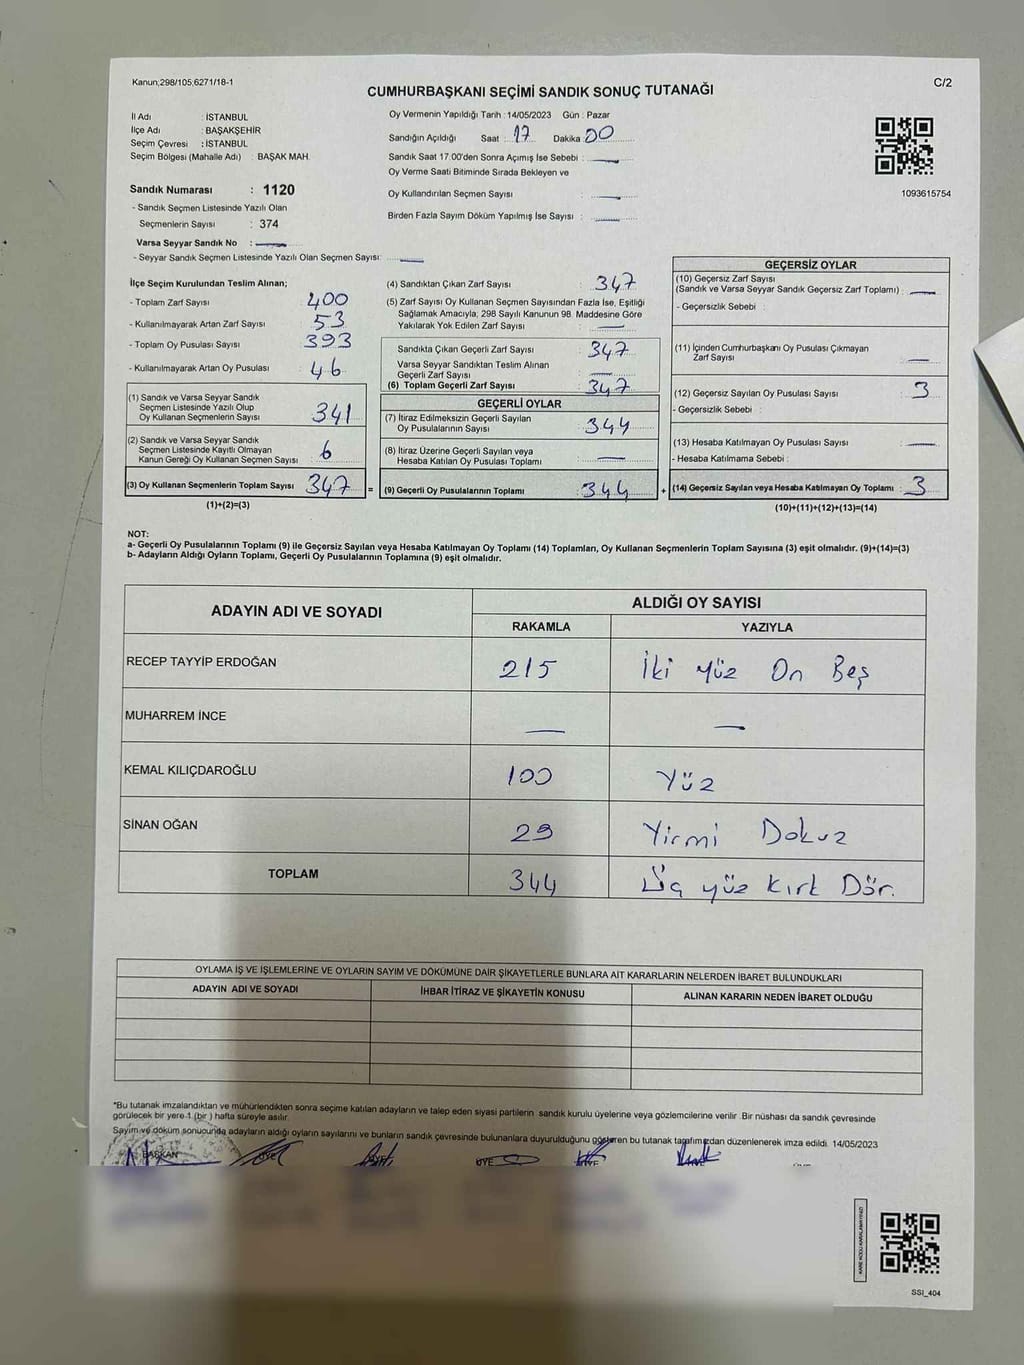 Kanun;298/105;6271/18-1
C/2
CUMHURBAŞKANI SEÇİMİ SANDIK SONUÇ TUTANAĞI
İl Adı : İSTANBUL
İlçe Adı : BAŞAKŞEHİR
Seçim Çevresi : İSTANBUL
Seçim Bölgesi (Mahalle Adı) : BAŞAK MAH.
Sandık Numarası : 1120
- Sandık Seçmen Listesinde Yazılı Olan
Seçmenlerin Sayısı : 374
Varsa Seyyar Sandık No : —
- Seyyar Sandık Seçmen Listesinde Yazılı Olan Seçmen Sayısı: —
Oy Vermenin Yapıldığı Tarih : 14/05/2023 Gün : Pazar
Sandığın Açıldığı Saat : 17 Dakika : 00
Sandık Saat 17.00'den Sonra Açımış İse Sebebi : —
Oy Verme Saati Bitiminde Sırada Bekleyen ve
Oy Kullandırılan Seçmen Sayısı : —
Birden Fazla Sayım Döküm Yapılmış İse Sayısı : —
1093615754
İlçe Seçim Kurulundan Teslim Alınan;
- Toplam Zarf Sayısı 400
- Kullanılmayarak Artan Zarf Sayısı 53
- Toplam Oy Pusulası Sayısı 393
- Kullanılmayarak Artan Oy Pusulası 46
(1) Sandık ve Varsa Seyyar Sandık
Seçmen Listesinde Yazılı Olup
Oy Kullanan Seçmenlerin Sayısı 341
(2) Sandık ve Varsa Seyyar Sandık
Seçmen Listesinde Kayıtlı Olmayan
Kanun Gereği Oy Kullanan Seçmen Sayısı 6
(3) Oy Kullanan Seçmenlerin Toplam Sayısı 347 =
(1)+(2)=(3)
(4) Sandıktan Çıkan Zarf Sayısı : 347
(5) Zarf Sayısı Oy Kullanan Seçmen Sayısından Fazla İse, Eşitliği
Sağlamak Amacıyla, 298 Sayılı Kanunun 98. Maddesine Göre
Yakılarak Yok Edilen Zarf Sayısı : —
Sandıkta Çıkan Geçerli Zarf Sayısı : 347
Varsa Seyyar Sandıktan Teslim Alınan
Geçerli Zarf Sayısı : —
(6) Toplam Geçerli Zarf Sayısı : 347
GEÇERLİ OYLAR
(7) İtiraz Edilmeksizin Geçerli Sayılan
Oy Pusulalarının Sayısı : 344
(8) İtiraz Üzerine Geçerli Sayılan veya
Hesaba Katılan Oy Pusulası Toplamı : —
(9) Geçerli Oy Pusulalarının Toplamı : 344 +
GEÇERSİZ OYLAR
(10) Geçersiz Zarf Sayısı
(Sandık ve Varsa Seyyar Sandık Geçersiz Zarf Toplamı) : —
- Geçersizlik Sebebi :
(11) İçinden Cumhurbaşkanı Oy Pusulası Çıkmayan
Zarf Sayısı : —
(12) Geçersiz Sayılan Oy Pusulası Sayısı : 3
- Geçersizlik Sebebi :
(13) Hesaba Katılmayan Oy Pusulası Sayısı : —
- Hesaba Katılmama Sebebi :
(14) Geçersiz Sayılan veya Hesaba Katılmayan Oy Toplamı : 3
(10)+(11)+(12)+(13)=(14)
NOT:
a- Geçerli Oy Pusulalarının Toplamı (9) ile Geçersiz Sayılan veya Hesaba Katılmayan Oy Toplamı (14) Toplamları, Oy Kullanan Seçmenlerin Toplam Sayısına (3) eşit olmalıdır. (9)+(14)=(3)
b- Adayların Aldığı Oyların Toplamı, Geçerli Oy Pusulalarının Toplamına (9) eşit olmalıdır.
ADAYIN ADI VE SOYADI ALDIĞI OY SAYISI
RAKAMLA YAZIYLA
RECEP TAYYİP ERDOĞAN 215 İki yüz On Beş
MUHARREM İNCE — —
KEMAL KILIÇDAROĞLU 100 Yüz
SİNAN OĞAN 29 Yirmi Dokuz
TOPLAM 344 Üç yüz Kırk Dör.
OYLAMA İŞ VE İŞLEMLERİNE VE OYLARIN SAYIM VE DÖKÜMÜNE DAİR ŞİKAYETLERLE BUNLARA AİT KARARLARIN NELERDEN İBARET BULUNDUKLARI
ADAYIN ADI VE SOYADI İHBAR İTİRAZ VE ŞİKAYETİN KONUSU ALINAN KARARIN NEDEN İBARET OLDUĞU
*Bu tutanak imzalandıktan ve mühürlendikten sonra seçime katılan adayların ve talep eden siyasi partilerin sandık kurulu üyelerine veya gözlemcilerine verilir. Bir nüshası da sandık çevresinde
görülecek bir yere 1 (bir) hafta süreyle asılır.
Sayım ve döküm sonucunda adayların aldığı oyların sayılarını ve bunların sandık çevresinde bulunanlara duyurulduğunu gösteren bu tutanak tarafımızdan düzenlenerek imza edildi. 14/05/2023
BAŞKAN ÜYE ÜYE ÜYE ÜYE
KARE KODU KARALAMAYINIZ!
SSI_404